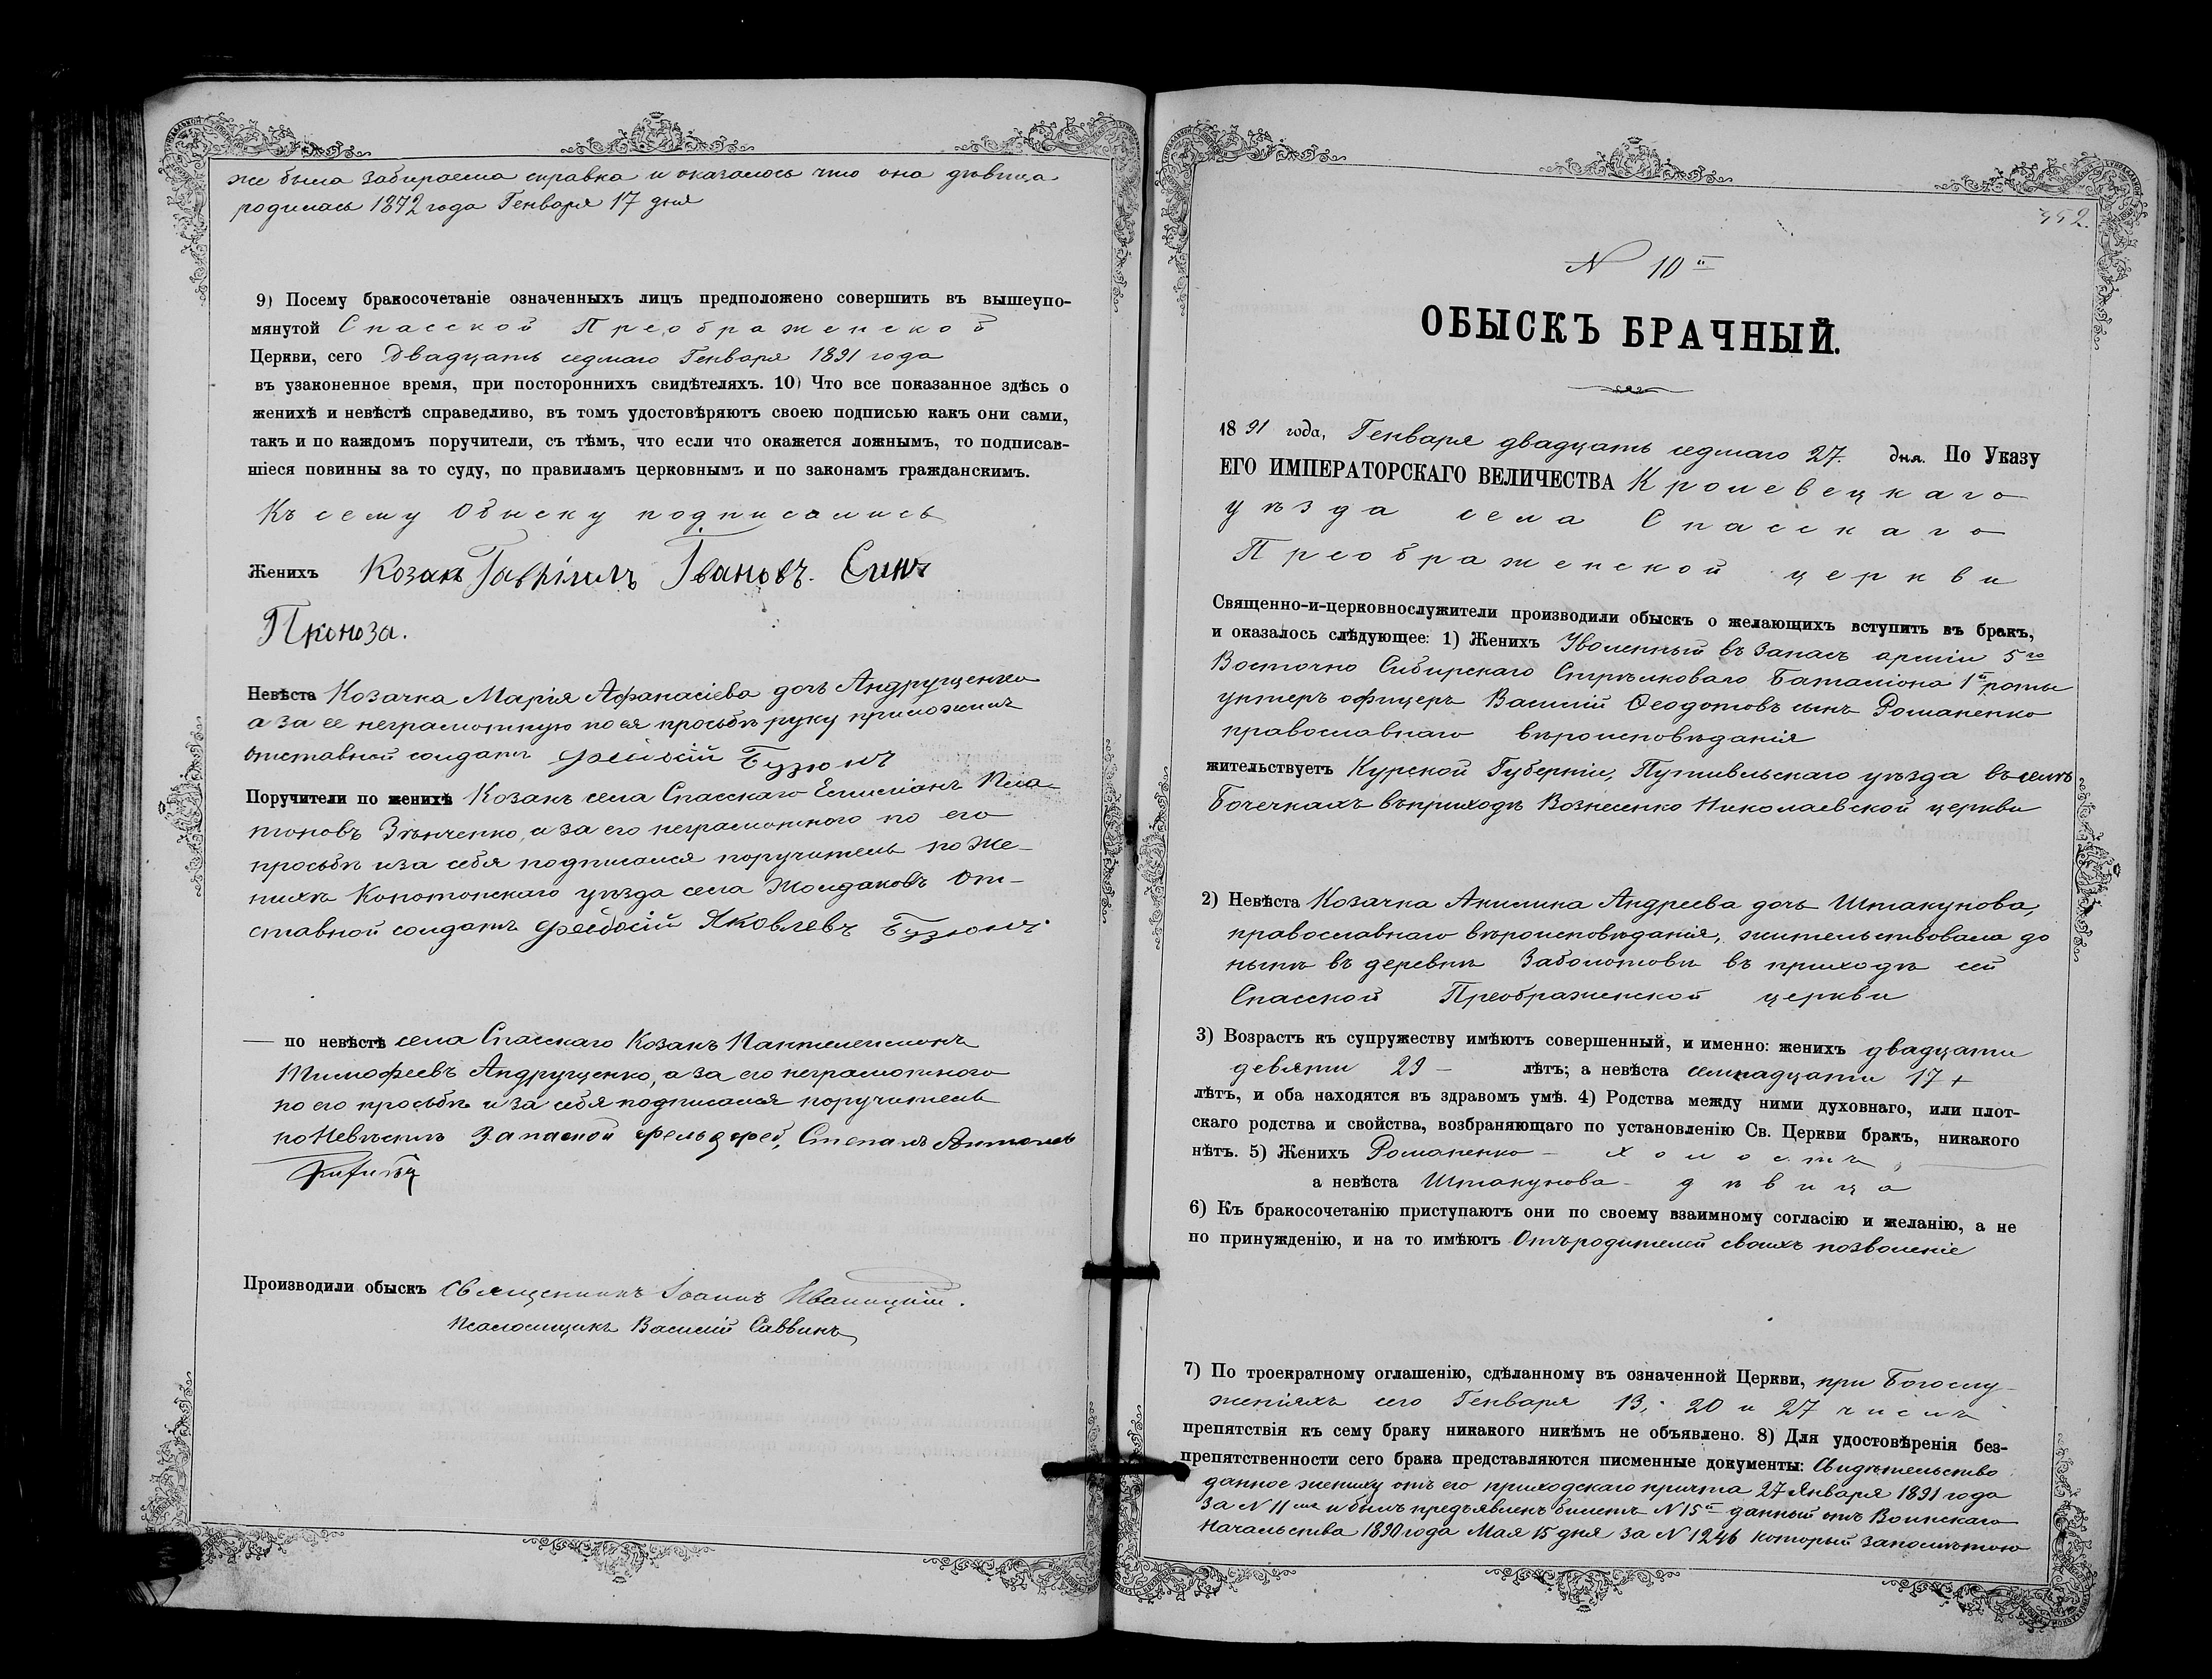 же была забираема справка и оказалось что она дѣвица
родилась 1872 года Генваря 17 дня
9) Посему бракосочетаніе означенныхъ лицъ предположено совершить въ вышеупо-
мянутой Спасской Преображенской
Церкви, сего двадцать седмаго Генваря 1891 года
въ узаконенное время, при постороннихъ свидѣтеляхъ. 10) Что все показанное здѣсь о
женихѣ и невѣстѣ справедливо, въ томъ удостовѣряютъ своею подписью какъ они сами,
такъ и по каждомъ поручители, съ тѣмъ, что если что окажется ложнымъ, то подписав-
шіеся повинны за то суду, по правиламъ церковнымъ и по законамъ гражданскимъ.
Къ сему Обыску подписались
Женихъ Козакъ Гаврііилъ Івановъ. Синъ
Проноза.
Невѣста Козачка Марія Афанасіева дочь Андрущенко
а за ее неграмотную по ея просьбѣ руку приложилъ
отставной солдатъ Феодосій Бузюлъ
Поручители по женихѣ Козакъ села Спасскаго Емиліанъ Пла-
тоновъ Зѣнченко, а за его неграмотного по его
просьбѣ и за себя подписался поручитель по Же-
нихѣ Конотопскаго уѣзда села Жолдаковъ От-
ставной солдатъ Феодосій Яковлевъ
— по невѣстѣ села Спасскаго Козакъ Пантелеимонъ
Тимофеевъ Андрущенко, а за его неграмотного
по его просьбѣ и за себя подписался поручитель
по Невѣстѣ Запасной фельдфеб. Степанъ Антонов
Производили обыскъ Священникъ Іоаннъ Иваницкій.
Псаломщикъ Василій Саввинъ
352.
N 10й
ОБЫСКЪ БРАЧНЫЙ.
1891 года, Генваря двадцать седмаго 27. дня. По Указу
ЕГО ИМПЕРАТОРСКАГО ВЕЛИЧЕСТВА Кролевецкаго
уѣзда села Спасскаго
Преображенской церкви
Священно-и-церковнослужители производили обыскъ о желающихъ вступить въ бракъ,
и оказалось слѣдующее: 1) Женихъ Уволенный въ Запасъ арміи 5го
Восточно Сибирскаго Стрѣлковаго Баталіона 1й роты
унтеръ офицеръ Василій Ѳеодотовъ сынъ Романенко
православнаго вѣроисповѣданія
жительствуетъ Курской Губерніи, Путивльскаго уѣзда въ селѣ
Бочечкахъ въ приходѣ Вознесенко Николаевской церкви
2) Невѣста Козачка Акилина Андреева дочь Штакунова,
православнаго вѣроисповѣданія, жительствовала до
нынѣ въ деревнѣ Заболотовѣ въ приходѣ сей
Спасской Преображенской церкви
3) Возрастъ къ супружеству имѣютъ совершенный, и именно: женихъ двадцати
девяти 29 — лѣтъ; а невѣста семнадцати 17 +
лѣтъ, и оба находятся въ здравомъ умѣ. 4) Родства между ними духовнаго, или плот-
скаго родства и свойства, возбраняющаго по установленію Св. Церкви бракъ, никакого
нѣтъ. 5) Женихъ Романенко — холостъ
а невѣста Штакунова — дѣвица
6) Къ бракосочетанію приступаютъ они по своему взаимному согласію и желанію, а не
по принужденію, и на то имѣютъ Отъ родителей своихъ позволеніе
7) По троекратному оглашенію, сдѣланному въ означенной Церкви, при Богослу-
женіяхъ сего Генваря 13, 20 и 27 числъ
препятствія къ сему браку никакого никѣмъ не объявлено. 8) Для удостовѣренія без-
препятственности сего брака представляются писменные документы: Свидѣтельство
данное жениху отъ его приходскаго причта 27 Января 1891 года
за N 11мъ и былъ предъявленъ билетъ N 15й данный отъ Воинскаго
Начальства 1890 года Мая 15 дня за N 1246 который запомѣтою